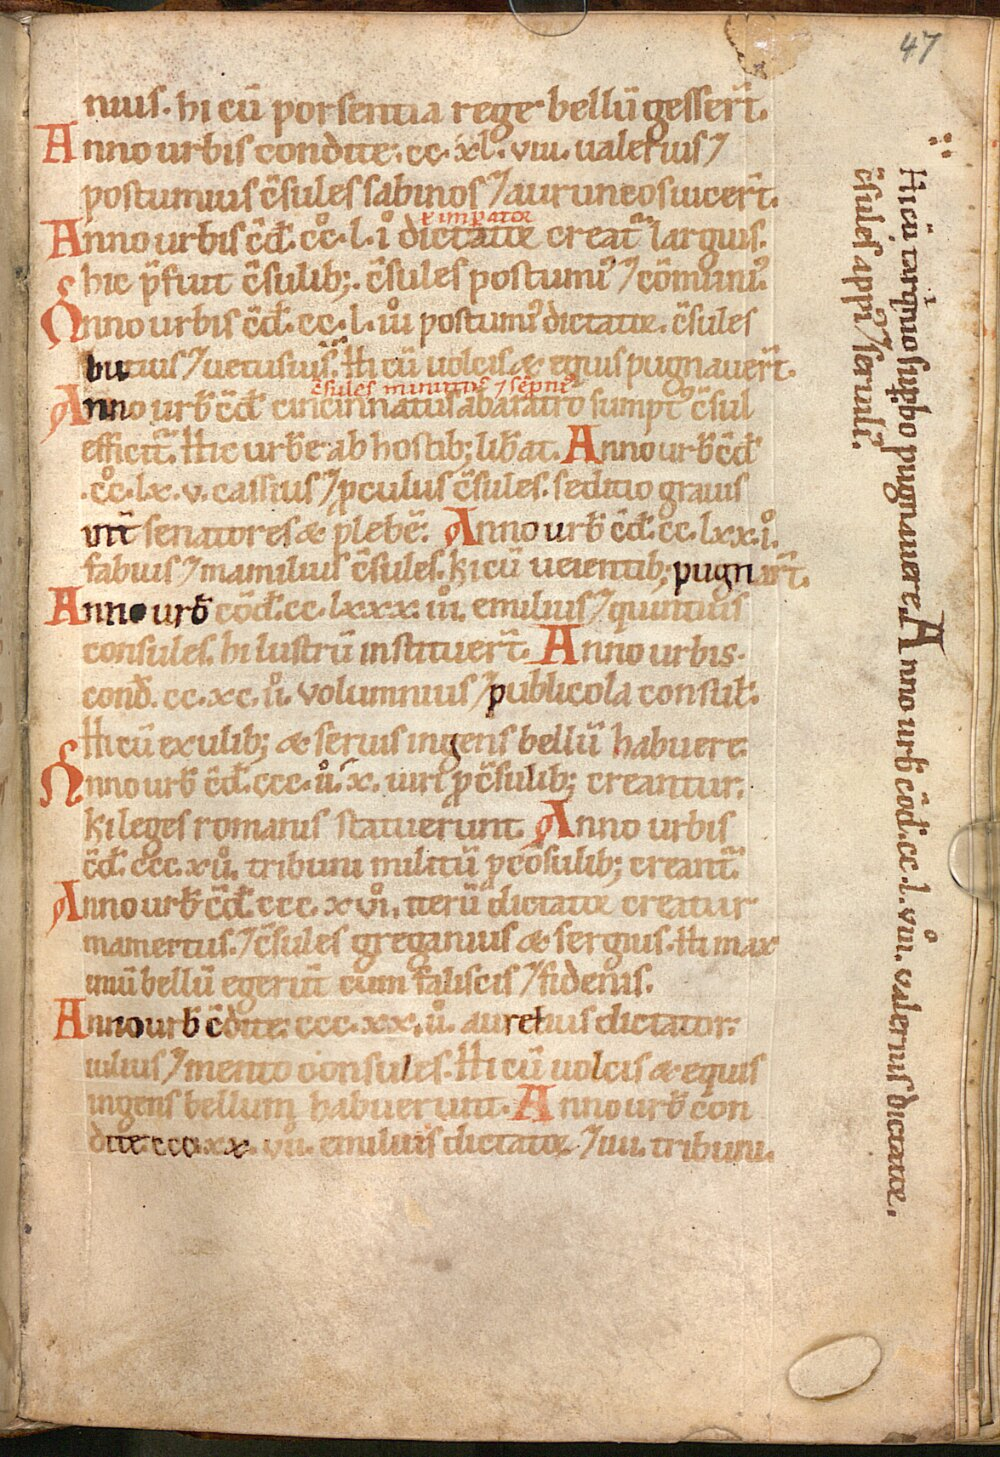 47
nius. hi cū porsentia rege bellū gesser̄t.
Anno urbis condite. cc. xl. viii. ualerius ⁊
postumius c̄sules sabinos ⁊ auruncos uicer̄t.
⁊ imperator
Anno urbis c̄d̄. cc. l. i dictator creat̄ larguis.
hic p̄fuit c̄sulib;. c̄sules postumiꝰ ⁊ cōminiꝰ.
Anno urbis c̄d̄. cc. l. iii postumꝰ dictator. c̄sules
butius ⁊ uetusius. Hi cū uolcis & equis pugnauer̄t.
c̄sules minutiꝰ ⁊ sēpniꝰ
Anno urb̄ c̄d̄ cincinnatus ab aratro sumptꝰ c̄sul
efficit̄. Hic urbē ab hostib; lib̄at. Anno urb̄ c̄d̄
.cc. lx. v. cassius ⁊ p̱culus c̄sules. seditio grauis
int̄ senatores & plebē. Anno urb̄ c̄d̄. cc. lxx. i.
fabius ⁊ mamilius c̄sules. hi cū ueientib; pugnar̄t.
Anno urb̄ cōd̄. cc. lxxx. iii. emilius ⁊ quintius
consules. hi lustrū instituer̄t. Anno urbis.
cond̄. cc. xc. ii. volumnius ⁊ publicola consul̄.
Hi cū exulib; & seruis ingens bellū habuere.
Anno urb̄ c̄d̄. ccc. ii. x. uiri p̱ c̄sulib; creantur.
hi leges romanis statuerunt. Anno urbis
c̄d̄. ccc. xii. tribuni militū p̱ cōsulib; creant̄.
Anno urb̄ c̄d̄. ccc. xvi. iterū dictator creatur
mamertus. ⁊ c̄sules greganius & sergius. Hi max
imū bellū egerūt cum faliscis ⁊ fidenis.
Anno urb̄ c̄dite. ccc. xx. ii. aurelius dictator.
iulius ⁊ mento consules. Hi cū uolcis & equis
ingens bellum habuerunt. Anno urb̄ con
dite. ccc. xx. vii. emilius dictator ⁊ iiii. tribuni.
Hi cū tarq̇nio sup̱bo pugnauere Anno urb̄ cōd̄. cc. l. viii. valerius dictator.
c̄sules appiꝰ ⁊ seruiliꝰ.